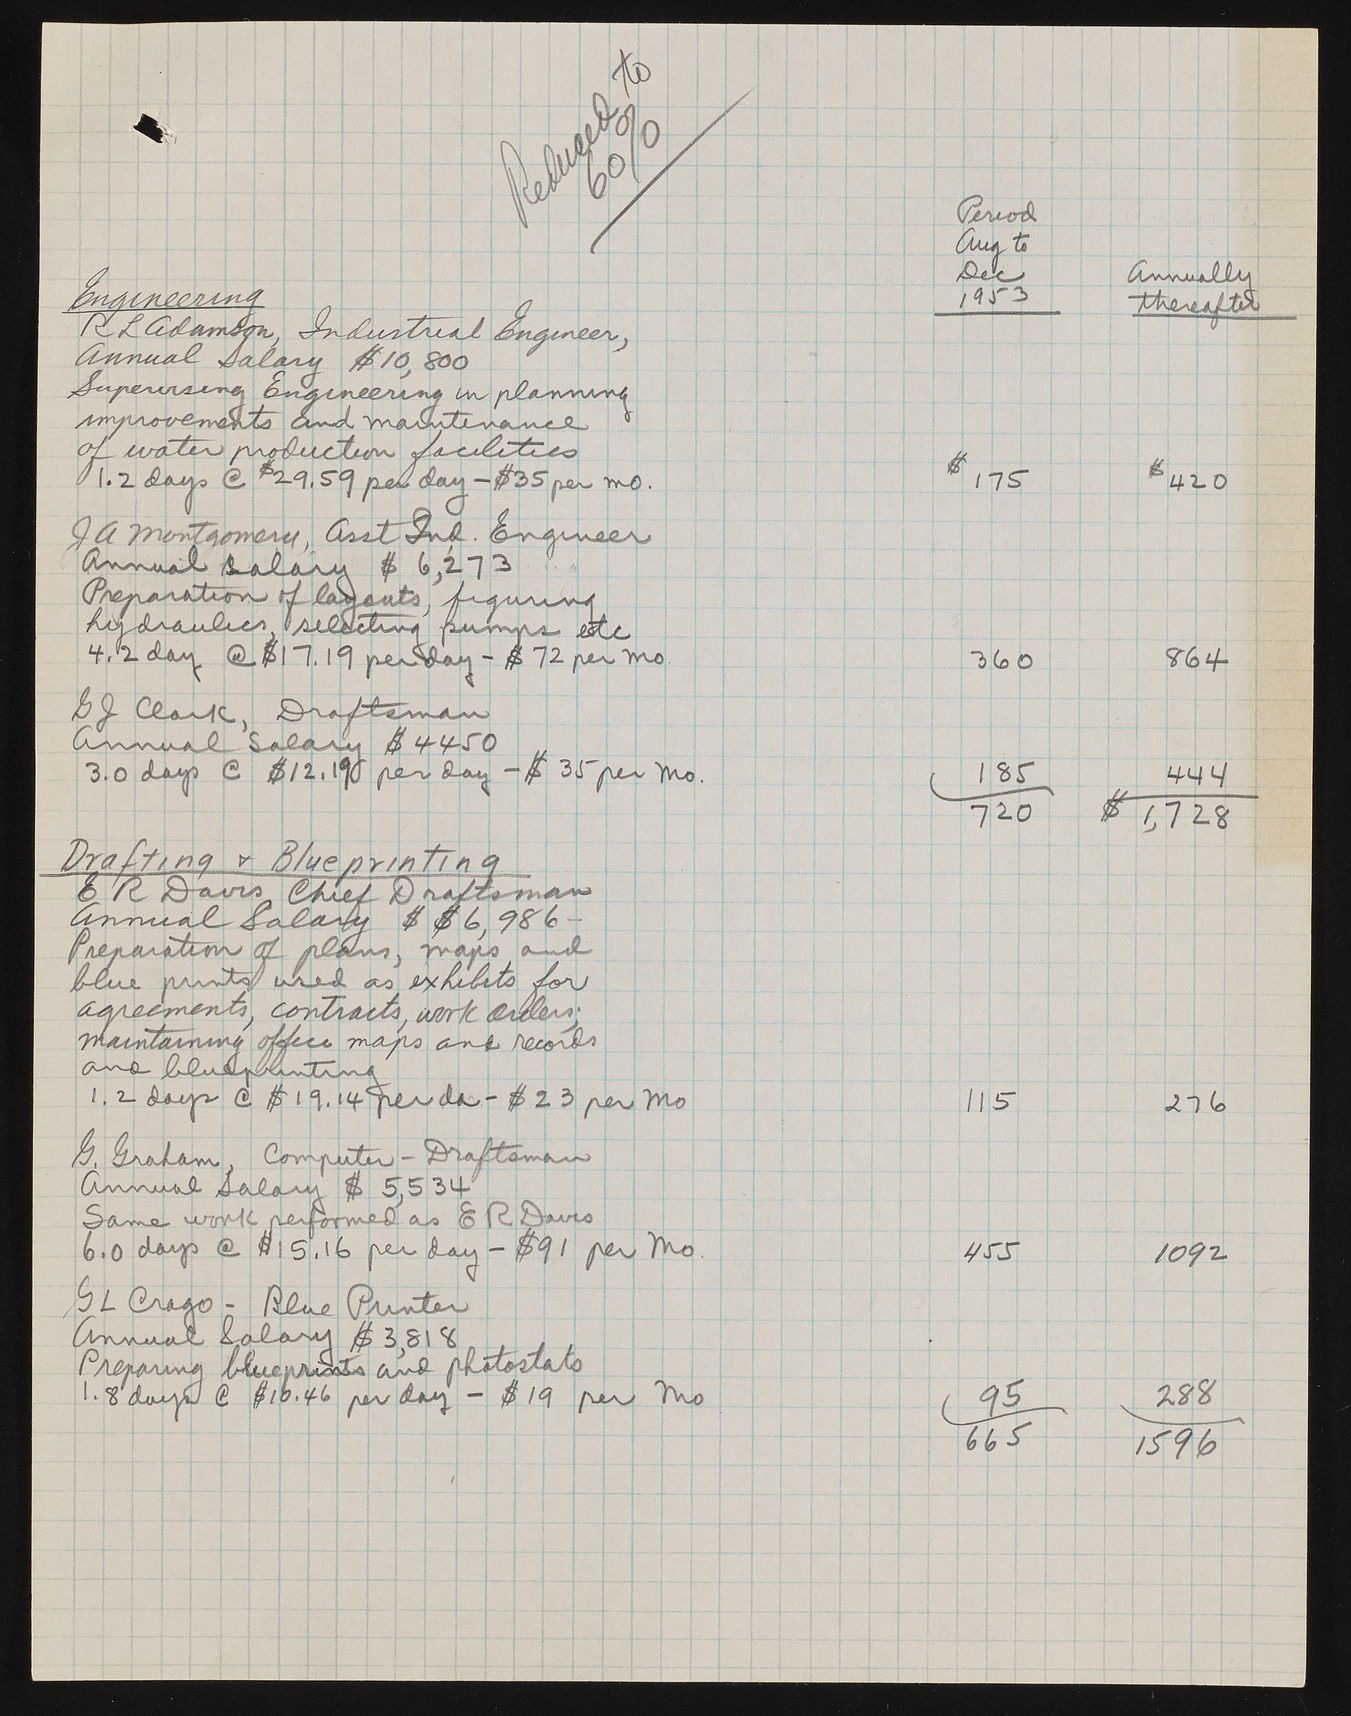 Reduced to
60%
Period
Aug to
Dec
1953
Annually
thereafter
Engineering
R L Adamson, Industrial Engineer,
Annual Salary $10,800
Supervising Engineering in planning
improvements and maintenance
of water production facilities
1.2 days @ $29.59 per day - $35 per mo. $175 $420
J A Montgomery, Asst Ind. Engineer
Annual Salary $ 6,273
Preparation of layouts, figuring
hydraulics, selecting pumps etc
4.2 day @ $17.19 per day - $72 per mo. 360 864
G J Clark, Draftsman
Annual Salary $4450
3.0 days @ $12.19 per day - $35 per Mo. 185 444
720 $ 1,728
Drafting & Blueprinting
E R Davis, Chief Draftsman
Annual Salary $ $6,986-
Preparation of plans, maps and
blue prints used as exhibits for
agreements, contracts, work orders;
maintaining office maps and records
and blueprinting
1.2 days @ $19.14 per da - $23 per Mo 115 276
G. Graham, Computer - Draftsman
Annual Salary $ 5,534
Same work performed as E R Davis
6.0 days @ $15.16 per day - $91 per Mo. 455 1092
G L Crago - Blue Printer
Annual Salary $3,818
Preparing blueprints and photostats
1.8 days @ $10.46 per day - $19 per Mo 95 288
665 1596